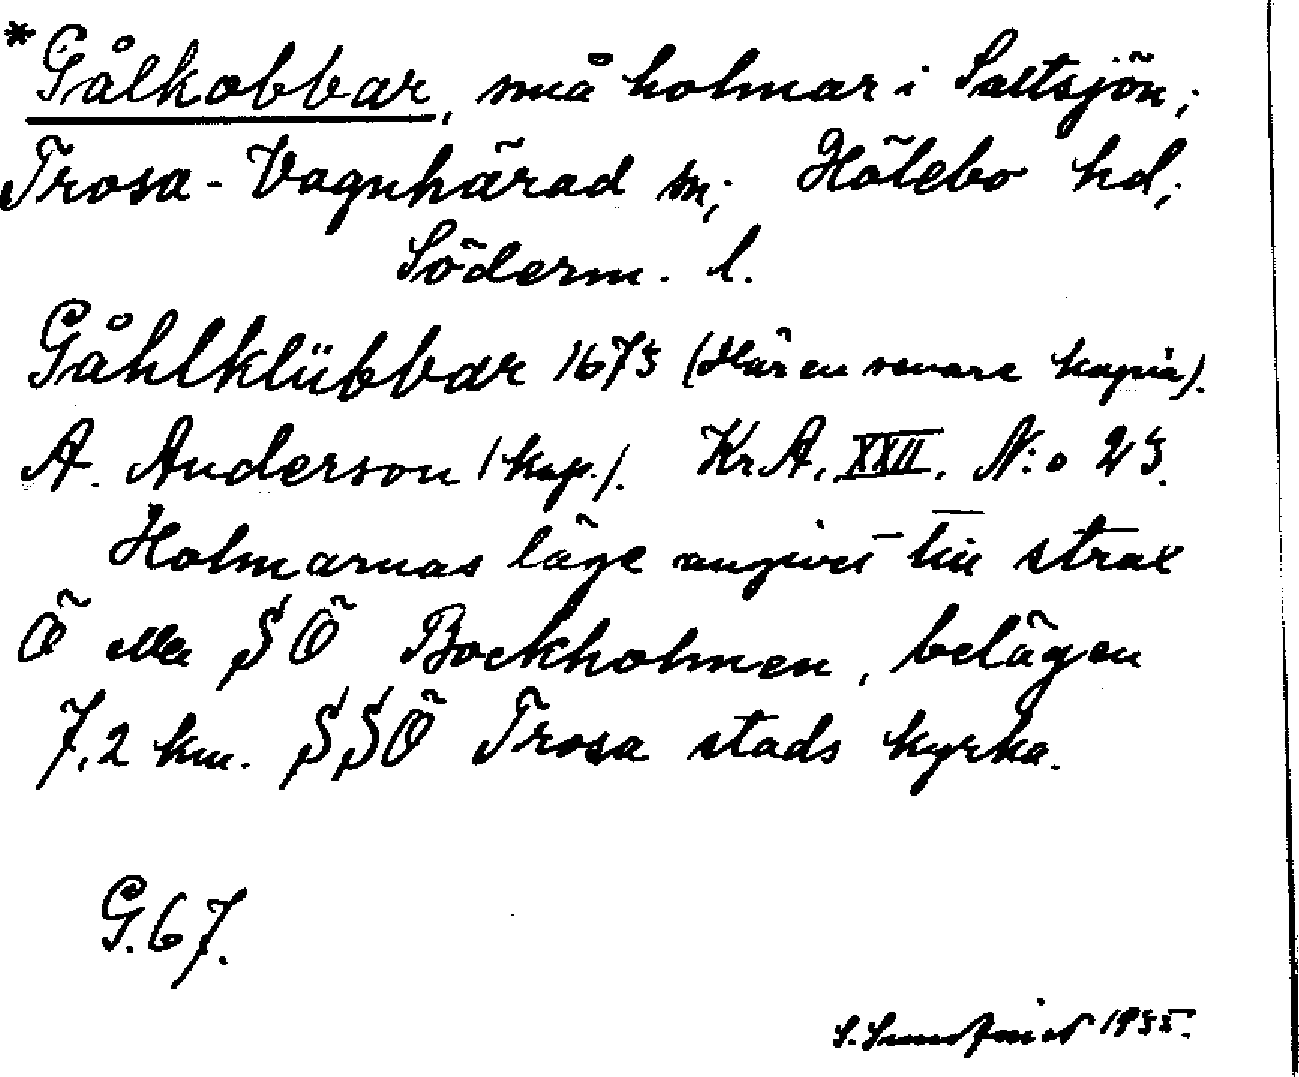 *Gålkobbar, små holmar i Saltsjön;
Trosa-Vagnhärad sn; Hölebo hd;
Söderm. l.
Gåhlklübbar 1675 (Här en senare kopia).
A. Anderson /kop./. Kr.A. XXII. N:o 25.
Holmarnas läge angivet till strax
Ö eller SÖ Bockholmen, belägen
7,2 km. SSÖ Trosa stads kyrka.
G.67.
S. Sundqvist 1935.